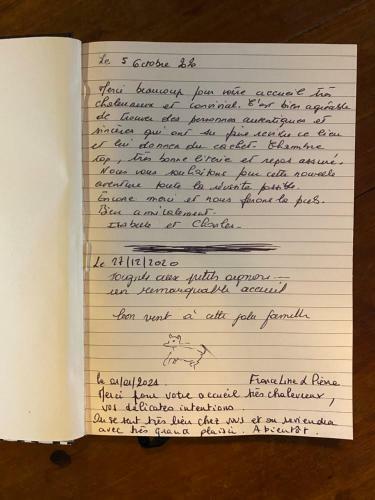 Le 5 Octobre 2020
Merci beaucoup pour votre accueil très
chaleureux et convivial. C'est bien agréable
de trouver des personnes authentiques et
sincères qui ont su faire revivre ce lieu
et lui donner du cachet. Chambre
top, très bonne literie et repas assuré.
Nous vous souhaitons pour cette nouvelle
aventure toute la réussite possible.
Encore merci et nous ferons la pub.
Bien amicalement.
Isabelle et Charles.
Le 27/12/2020
Soignés aux petits oignons
un remarquable accueil
bon vent à cette jolie famille
FranceLine & Pierre
le 01/01/2021
Merci pour votre accueil très chaleureux,
vos délicates intentions.
On se sent très bien chez vous et on reviendra
avec très grand plaisir. A bientôt.